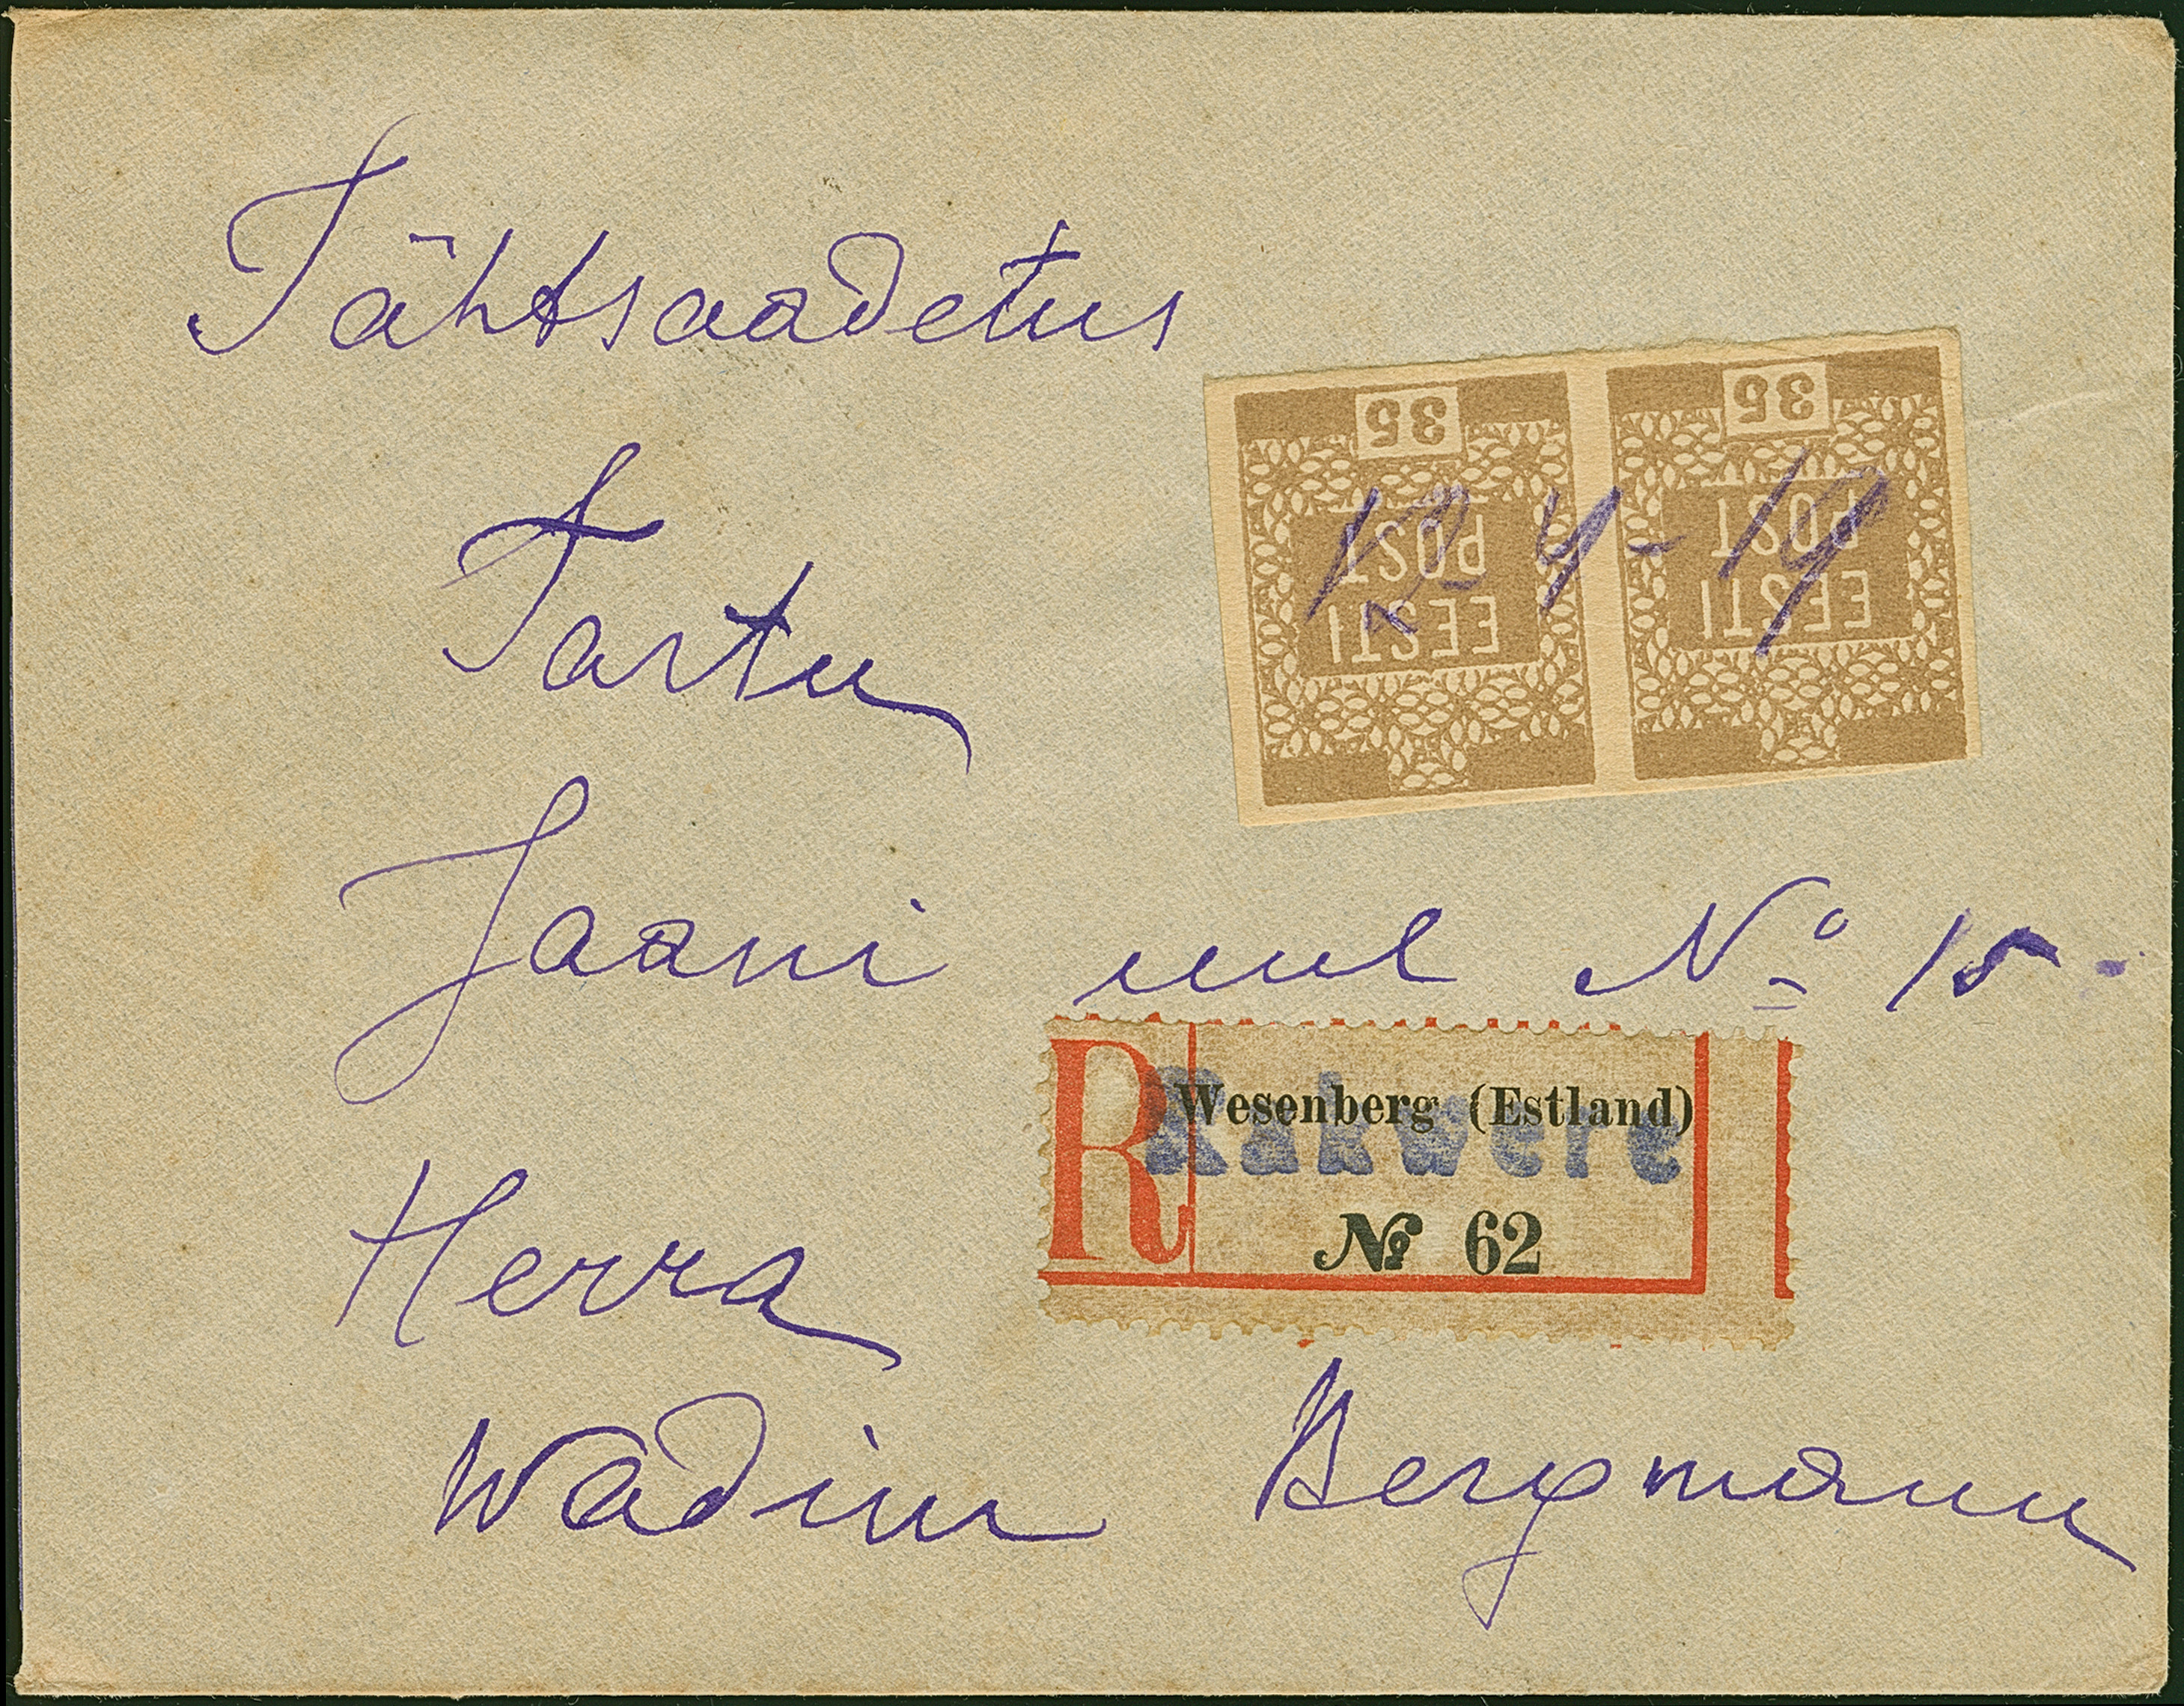 Tähtsaadetus
35 35
POST POST
EESTI EESTI
12-4-19
Tartu
Jaani uul No 15-
R Wesenberg (Estland)
Rakwere
№ 62
Herra
Wadim Bergmann